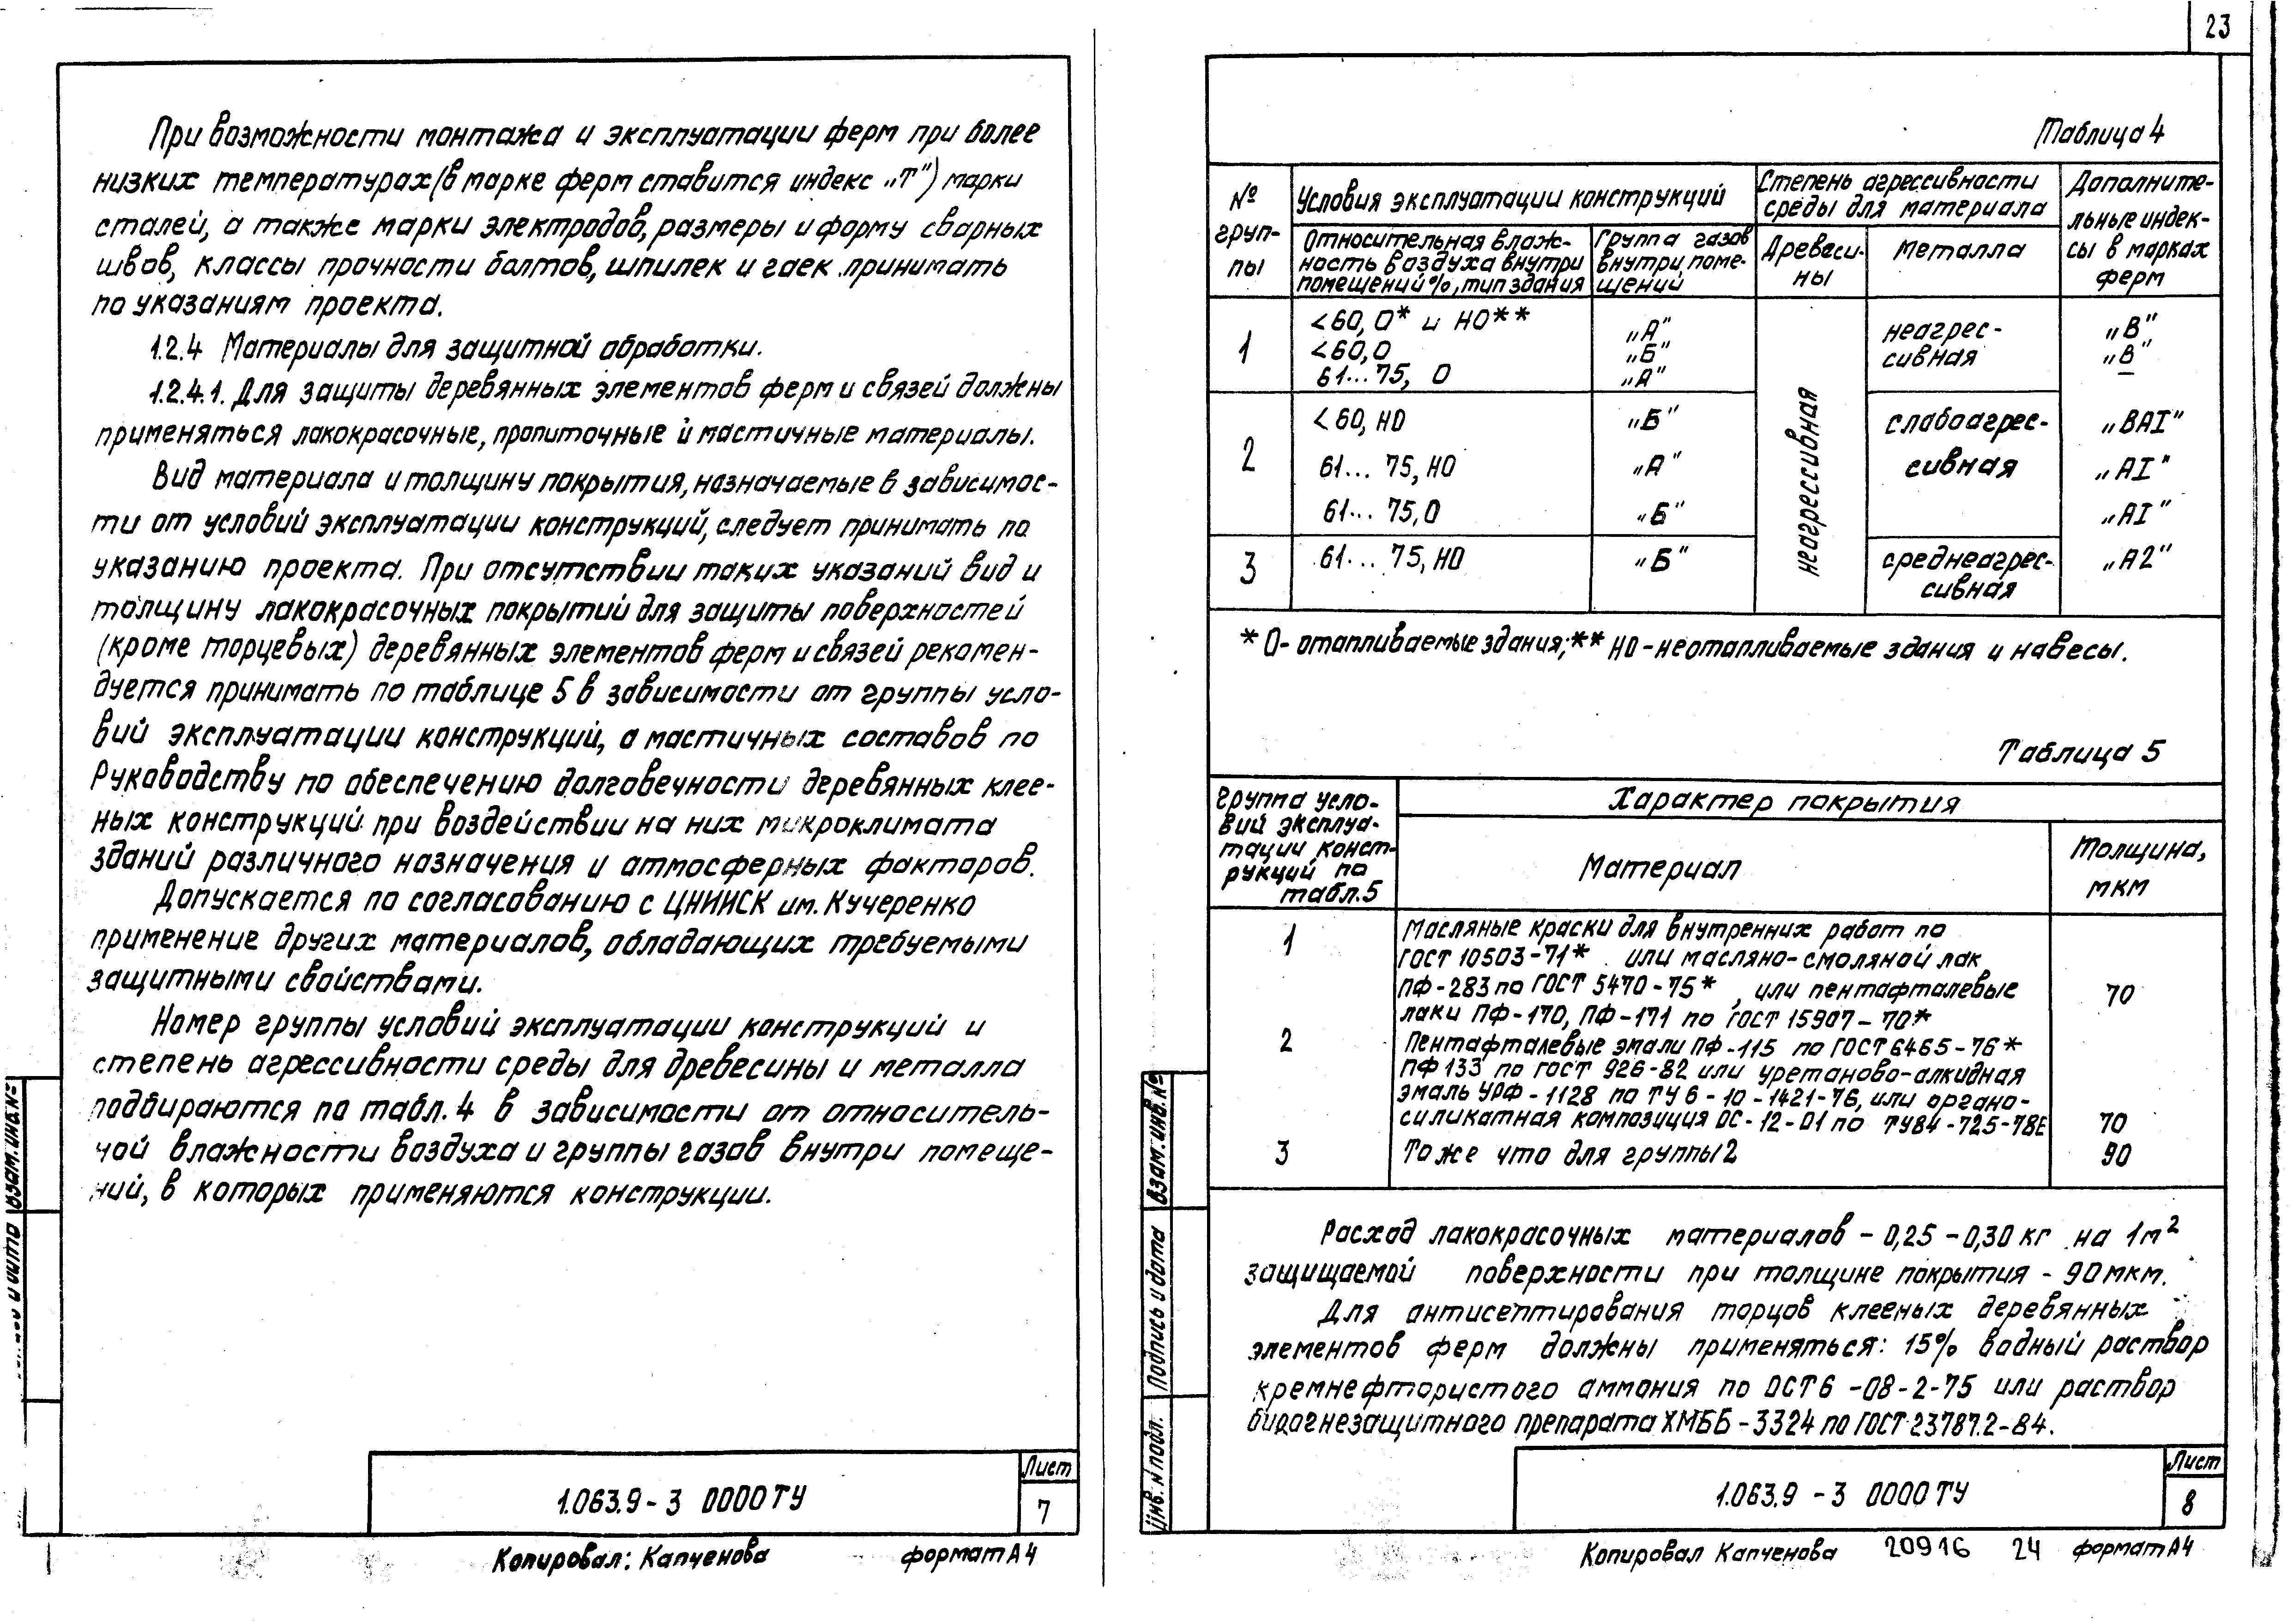 23
При возможности монтажа и эксплуатации ферм при более
низких температурах (в марке ферм ставится индекс „Т") марки
сталей, а также марки электродов, размеры и форму сварных
швов, классы прочности болтов, шпилек и гаек принимать
по указаниям проекта.
1.2.4 Материалы для защитной обработки.
1.2.4.1. Для защиты деревянных элементов ферм и связей должны
применяться лакокрасочные, пропиточные и мастичные материалы.
Вид материала и толщину покрытия, назначаемые в зависимос-
ти от условий эксплуатации конструкций, следует принимать по
указанию проекта. При отсутствии таких указаний вид и
толщину лакокрасочных покрытий для защиты поверхностей
(кроме торцевых) деревянных элементов ферм и связей рекомен-
дуется принимать по таблице 5 в зависимости от группы усло-
вий эксплуатации конструкций, а мастичных составов по
Руководству по обеспечению долговечности деревянных клее-
ных конструкций при воздействии на них микроклимата
зданий различного назначения и атмосферных факторов.
Допускается по согласованию с ЦНИИСК им. Кучеренко
применение других материалов, обладающих требуемыми
защитными свойствами.
Номер группы условий эксплуатации конструкций и
степень агрессивности среды для древесины и металла
подбираются по табл. 4 в зависимости от относитель-
ной влажности воздуха и группы газов внутри помеще-
ний, в которых применяются конструкции.
1.063.9-3 0000ТУ
Лист
7
Копировал: Капченова формат А4
Таблица 4
№ груп-
пы
Условия эксплуатации конструкций
Степень агрессивности
среды для материала
Дополните-
льные индек-
сы в марках
ферм
Относительная влаж-
ность воздуха внутри
помещений %, тип здания
Группа газов
внутри поме-
щений
Древеси-
ны
Металла
1
<60, О* и НО** „А" „В"
<60, О „Б" „В"
61... 75, О „А" –
неагрес-
сивная
неагрессивная
2
<60, НО „Б" „ВАI"
61... 75, НО „А" „АI"
61... 75, О „Б" „АI"
слабоагрес-
сивная
3 61... 75, НО „Б" среднеагрес- „А2"
сивная
* О- отапливаемые здания; ** НО - неотапливаемые здания и навесы.
Таблица 5
Группа усло-
вий эксплуа-
тации конст-
рукций по
табл. 5
Характер покрытия
Материал
Толщина,
мкм
1 Масляные краски для внутренних работ по
ГОСТ 10503-71* или масляно-смоляной лак
ПФ-283 по ГОСТ 5470-75*, или пентафталевые 70
лаки ПФ-170, ПФ-171 по ГОСТ 15907-70*
2 Пентафталевые эмали ПФ-115 по ГОСТ 6465-76*
ПФ 133 по ГОСТ 926-82 или уретаново-алкидная
эмаль УРФ-1128 по ТУ 6-10-1421-76, или органо-
силикатная композиция ОС-12-01 по ТУ84-725-78Е 70
3 То же что для группы 2 90
Расход лакокрасочных материалов - 0,25 - 0,30 кг на 1м²
защищаемой поверхности при толщине покрытия - 90 мкм.
Для антисептирования торцов клееных деревянных
элементов ферм должны применяться: 15% водный раствор
кремнефтористого аммония по ОСТ 6-08-2-75 или раствор
биоогнезащитного препарата ХМББ-3324 по ГОСТ 23787.2-84.
Взам. инв. №
Подпись и дата
Инв. № подл.
1.063.9-3 0000ТУ
Лист
8
Копировал Капченова 20916 24 формат А4